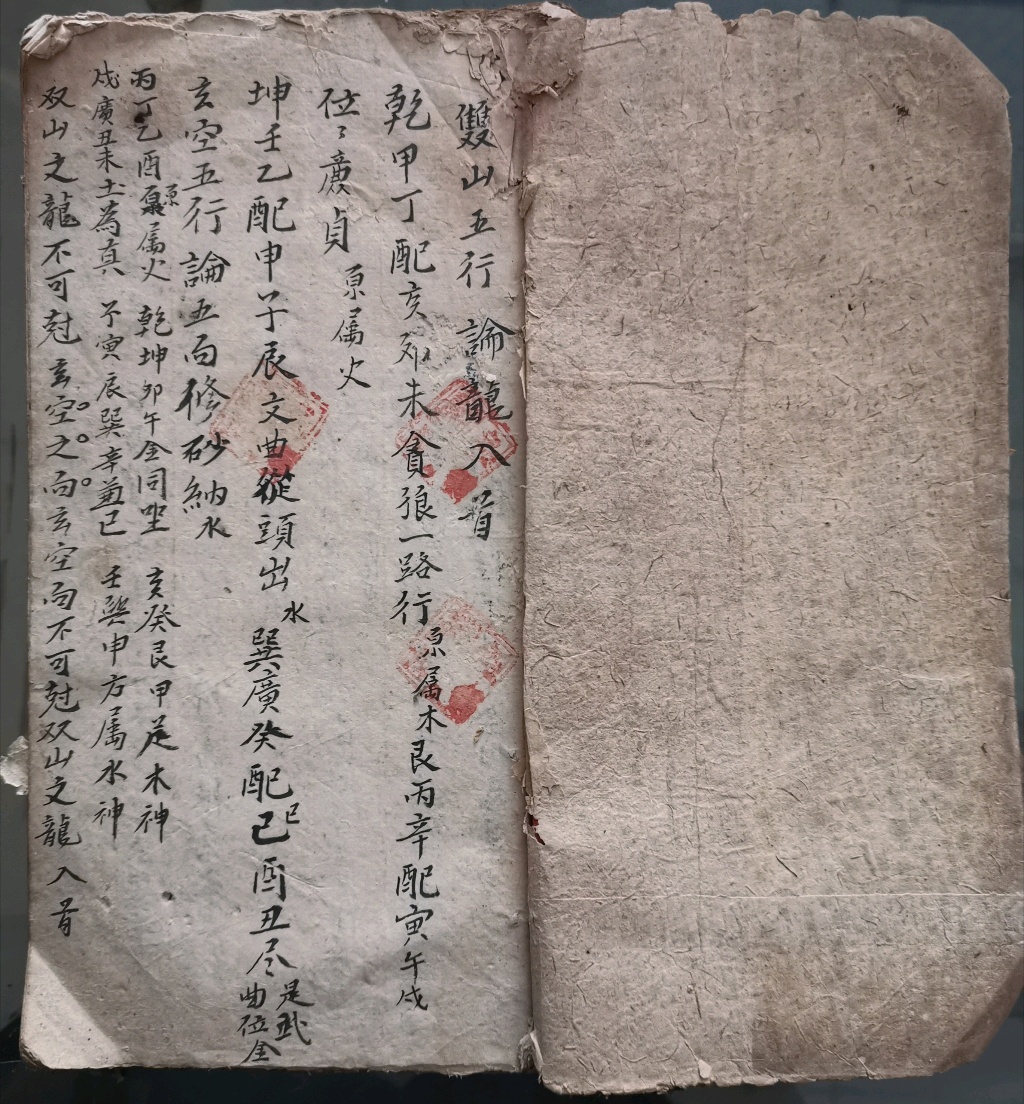 雙山五行 論龍入首
乾甲丁配亥卯未貪狼一路行 原属木 艮丙辛配寅午戍
位〻廣貞 原属火
坤壬乙配申子辰文曲從頭出 水 巽廣癸配己巳酉丑尽是武曲位金
玄空五行論五向修砂納水
丙丁乙酉原属火 乾坤卯午金同坐 亥癸艮甲是木神
戍廣丑未土為真 子寅辰巽辛兼已 壬巽申方属水神
双山之龍不可尅玄空之向玄空向不可尅双山文龍入首